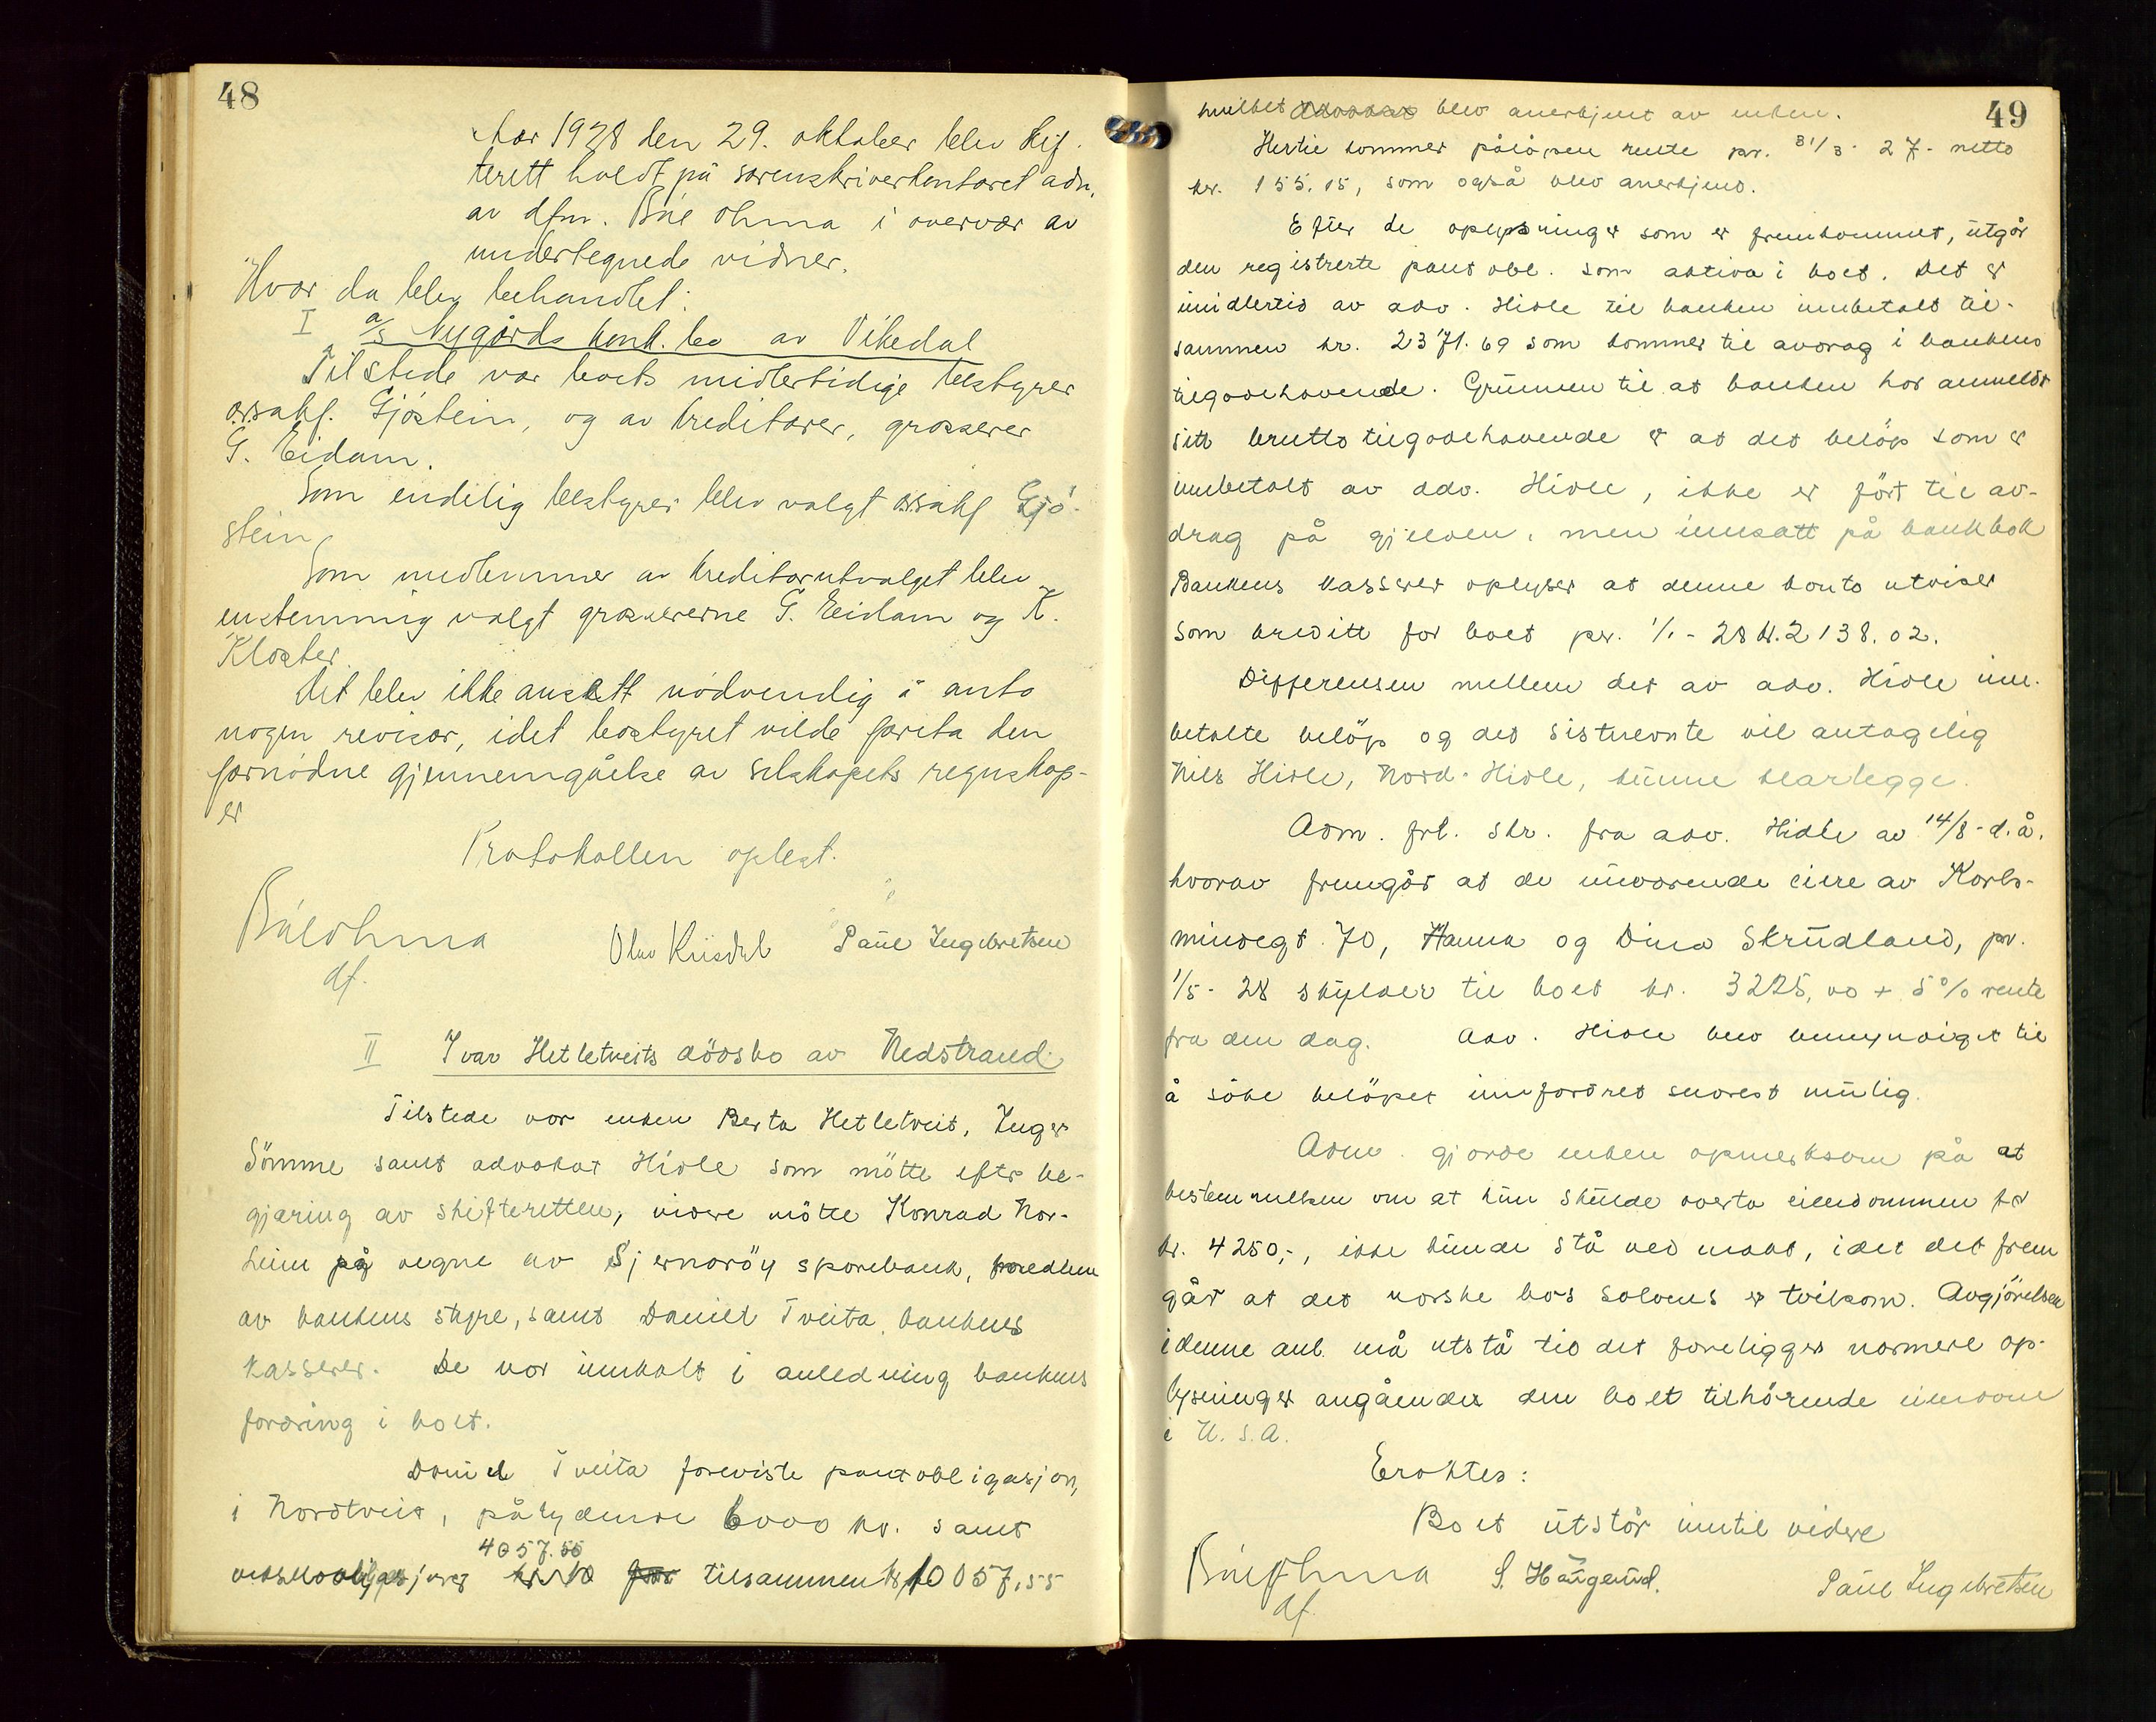 48
Aar 1928 den 29. oktober blev skif-
terett holdt på sorenskriverkontoret adm.
av dfm. Búe Ohma i overvær av
undertegnede vidner.
Hvor da blev behandlet:
I a/s Nygårds konk. bo av Vikedal
Tilstede var boets midlertidige bestyrer
o.r.sakf. Gjöstein, og av kreditorer, grosserer
G. Eidam.
Som endelig bestyrer blev valgt o.r.sakf Gjö-
stein
Som medlemmer av kreditorutvalget blev
enstemmig valgt grossererne G. Eidam og K.
Kloster.
Det blev ikke ansett nödvendig å anta
nogen revisor, idet bostyret vilde foreta den
fornödne gjennemgåelse av selskapets regnskap-
er
Protokollen oplest.
Búe Ohma
df.
Olav Paul Ingebretsen
II Ivar Hetletveits dödsbo av Nedstrand.
Tilstede var enken Berta Hetletveit, Inger
Sömme samt advokat Hidle som mötte efter be-
gjæring av skifteretten, videre mötte Konrad Nor-
heim på vegne av Sjernaröy sparebank, medlem
av bankens styre, samt Daniel Tveita, bankens
kasserer. De var innkalt i anledning bankens
fordring i boet.
Daniel Tveita foreviste pantobligasjon,
i Nordtveit, pålydende 6000 kr. samt
4057.55
tilsammen kr 10057,55
49
hvilket advokat blev anerkjent av enken.
Hertil kommer påløpen rente pr. 31/3 - 27 - netto
kr. 155.15, som også blev anerkjend.
Efter de oplysninger som er fremkommet, utgår
den registrerte pant obl. som aktiva i boet. Det er
imidlertid av adv. Hidle til banken innbetalt til-
sammen kr. 2371.69 som kommer til avdrag i bankens
tilgodehavende. Grunnen til at banken har anmeldt
sitt brutto tilgodehavende er at det belöp som er
innbetalt av adv. Hidle, ikke er fört til av-
drag på gjelden, men innsatt på bankbok
Bankens kasserer oplyser at denne konto utviser
som kreditt for boet pr. 1/1 - 28 kr. 2138.02.
Differensen mellem det av adv. Hidle inn-
betalte belöp og det sistnevnte vil antagelig
Nils Hidle, Nord-Hidle, kunne klarlegge.
Adm. frl. skr. fra adv. Hidle av 14/8 - d.å.
hvorav fremgår at de nuværende eiere av Karls-
mindegt. 70, Hanna og Dina Skrudland, pr.
1/5 - 28 skylder til boet kr. 3225,00 + 5% rente
fra den dag. Adv. Hidle blev bemyndiget til
å söke belöpet innfordret snarest mulig.
Adm. gjorde enken opmerksom på at
bestemmelsen om at hun skulde overta eiendommen for
kr. 4250,-, ikke kunde stå ved makt, idet det frem
går at det norske bos solvens er tvilsom. Avgjörelsen
i denne anl. må utstå til det foreligger nærmere op-
lysninger angående den boet tilhörende eiendom
i U.S.A.
Eraktes:
Boet utstår inntil videre
Búe Ohma
df.
S. Haugerud.
Paul Ingebretsen